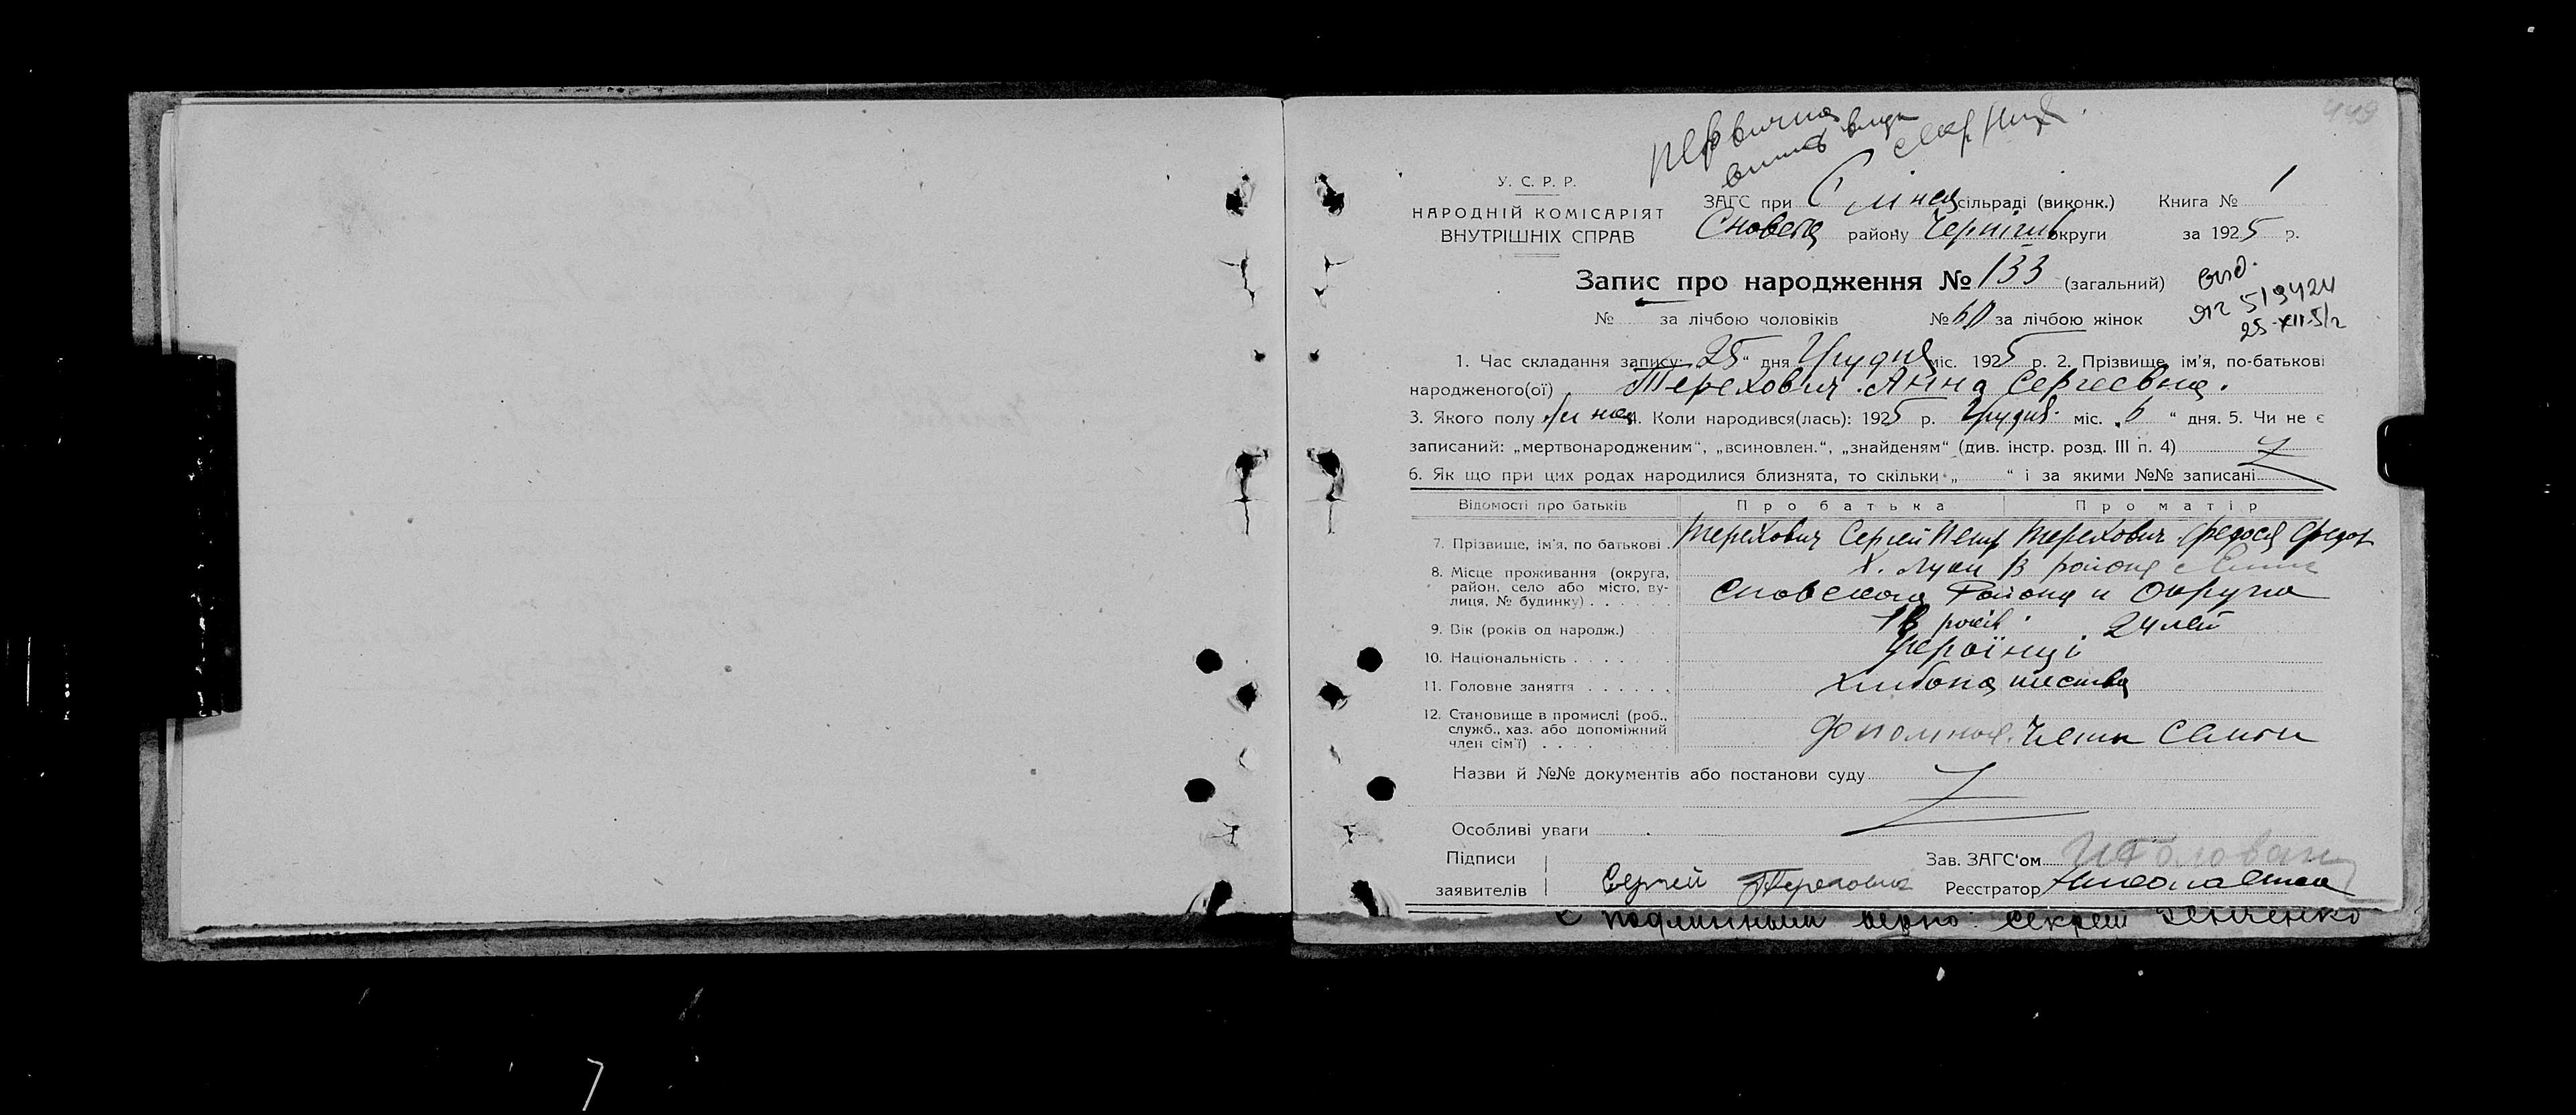 449
первична
У. С. Р. Р.
НАРОДНІЙ КОМІСАРІЯТ
ВНУТРІШНІХ СПРАВ
ЗАГС при сільраді (виконк.) Книга № 1
району Черниг округи за 1925 р.
Запис про народження № 133 (загальний)
№ за лічбою чоловіків № 60 за лічбою жінок
вид.
519424
25-XII-51г
1. Час складання запису: 25 " дня Грудня міс. 1925 р. 2. Прізвище, ім'я, по-батькові
народженого(ої) Терехович Анна Сергеевна.
3. Якого полу 4. Коли народився(лась): 1925 р. Грудня міс. „6 " дня. 5. Чи не є
записаний: „мертвонародженим", „всиновлен.", „знайденям" (див. інстр. розд. III п. 4)
6. Як що при цих родах народилися близнята, то скільки „ " і за якими №№ записані
Відомості про батьків Про батька Про матір
7. Прізвище, ім'я, по батькові Терехович Сергей Петр Терехович Федося Федот
8. Місце проживання (округа,
район, село або місто, ву-
лиця, № будинку)
Сновского Району и Округа
9. Вік (років од народж.) 18 років 24 лет
10. Національність Українці
11. Головне заняття хлибопашество
12. Становище в промислі (роб.,
служб., хаз. або допоміжний
член сім'ї)
Члени Семьи
Назви й №№ документів або постанови суду
Особливі уваги
Підписи
заявителів Сергей Терехович
Зав. ЗАГС'ом
Реєстратор
С подлинным верно: секрет Зенченко